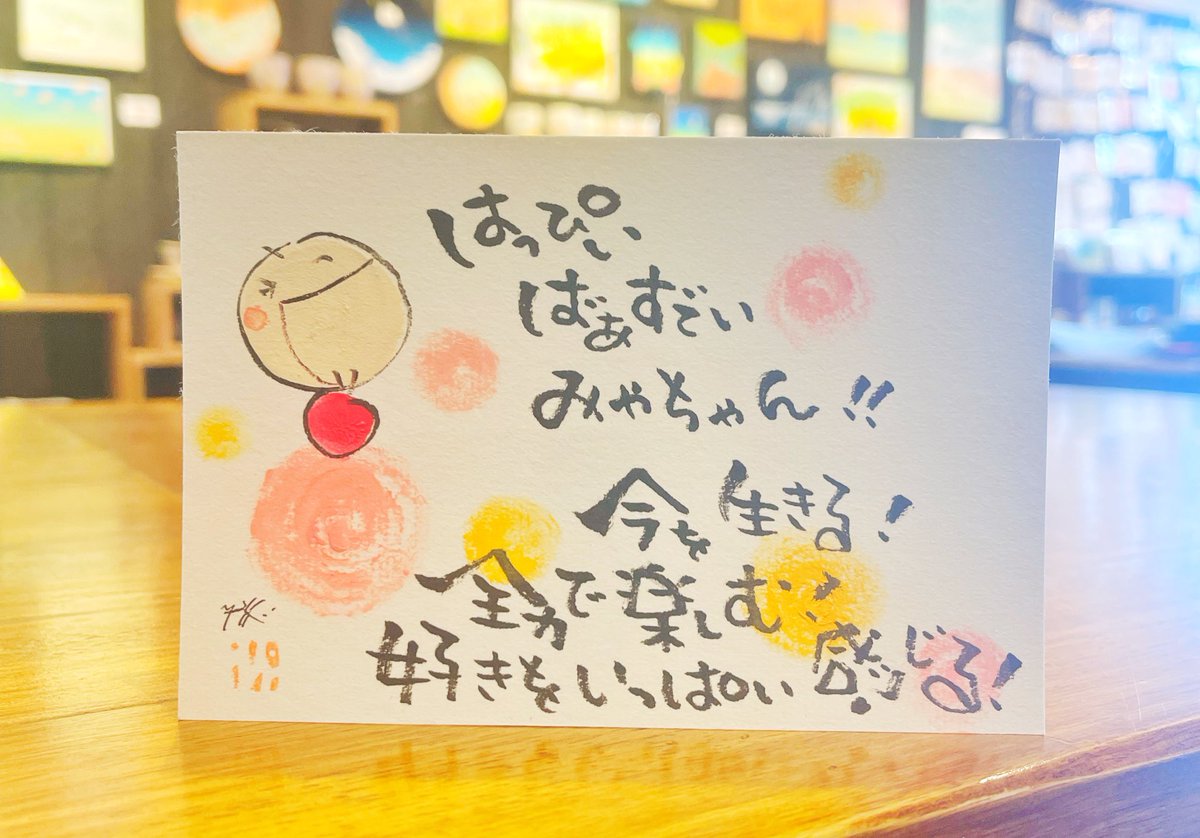 はっぴぃ
ばぁすでい
みやちゃん!!
今を生きる!
全力で楽しむ!
好きをいっぱい感じる!